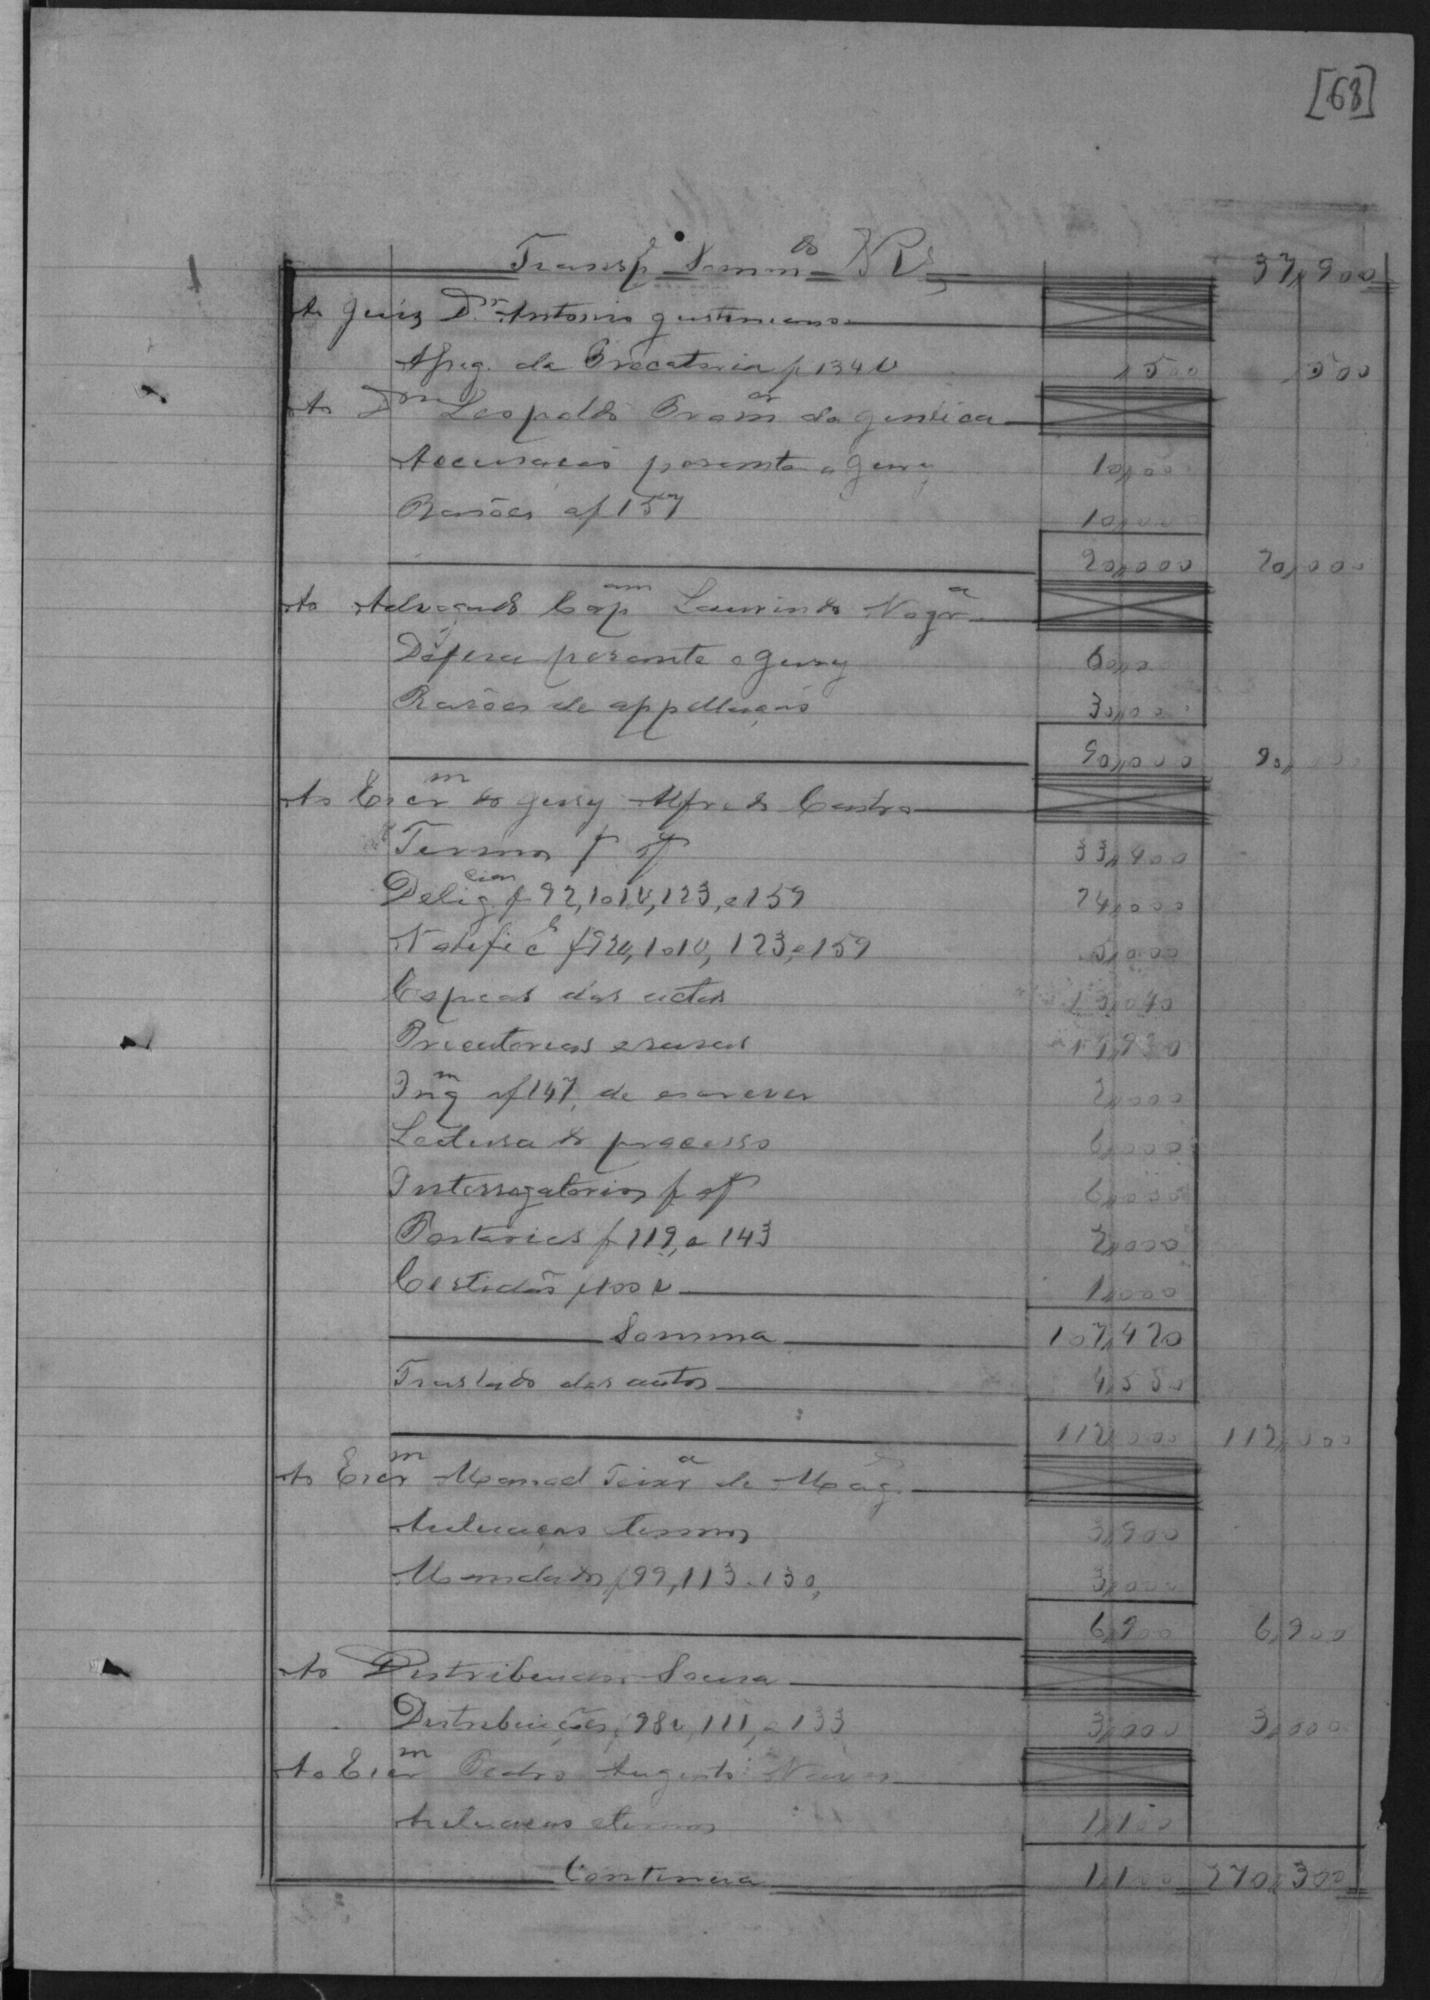 [68]
Transp.e Somm.do Rs 37,900
Ao Juiz Dr. Antonio Justiniano
Apreg. da Precatoria f 134 v 1,500 1,500
Ao Leopoldo Prom.or da Justiça
Accusação perante o Jury 10,000
Rasões af 157 10,000
20,000 20,000
Ao Advogado Cap.am Laurindo Nogr.a
Defesa perante o Jury 60,000
Rasões de appellação 30,000
90,000 90,000
Ao Escr.m do Jury Alfredo Castro
Termos f af 33,900
Delig.cias f 92, 101 v, 123, e 159 24,000
Notific.
Copias dos autos
Precatorias e
af 147, de escrever 2,000
Leitura do processo 6,000
Interrogatorios f af 6,000
Portarias f 119, e 143 2,000
Certidão f 100 v 1,000
Somma 107,420
Traslado dos autos 4,580
112,000 112,000
Ao Escr.m Manoel Teixr.a de Mag.
Autuação e termos 3,900
Mandados f 99, 113 e 130, 3,000
6,900 6,900
Ao Distribuidor Sousa
Distribuições, f 98 v, 111, e 133 3,000 3,000
Ao Escr.m Pedro Augusto Neves
Autuação e termos 1,100
Continua 1,100 270,300